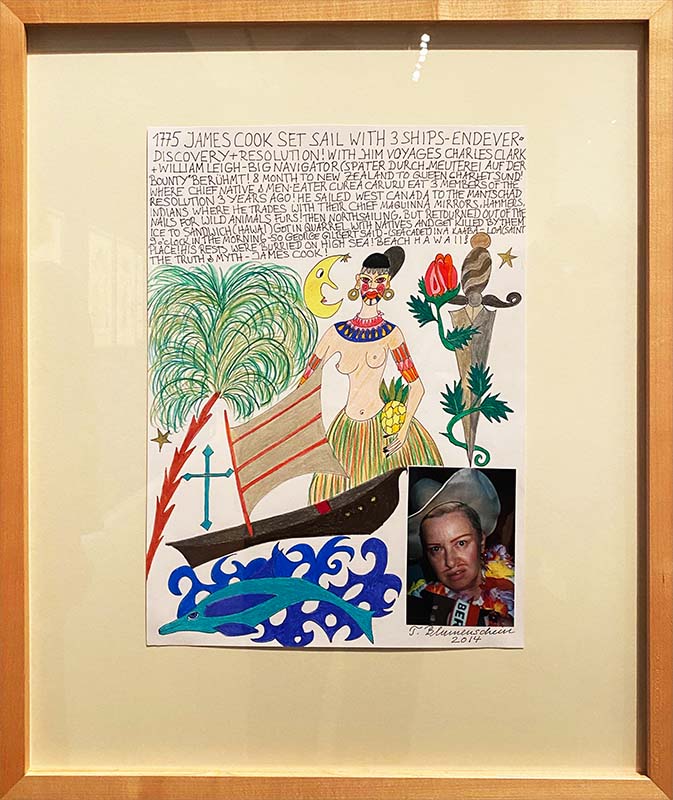 1775 JAMES COOK SET SAIL WITH 3 SHIPS-ENDEVER-
DISCOVERY + RESOLUTION! WITH HIM VOYAGES CHARLES CLARK
+ WILLIAM LEIGH-BIG NAVIGATOR (SPÄTER DURCH „MEUTEREI AUF DER
BOUNTY" BERÜHMT! 8 MONTH TO NEW ZEALAND TO QUEEN CHARLET SUND!
WHERE CHIEF NATIVE & MEN-EATER CUREA CARURU EAT 3 MEMBERS OF THE
RESOLUTION 3 YEARS AGO! HE SAILED WEST CANADA TO THE MANTSCHAD
INDIANS WHERE HE TRADES WITH THEIR CHIEF MAQUINNA MIRRORS, HAMMERS,
NAILS FOR WILD ANIMALS FURS! THEN NORTHSAILING, BUT RETOURNED OUT OF THE
ICE TO SANDWICH (HAWAI) GOT IN QUARREL WITH NATIVES AND GET KILLED BY THEM
9 o'clock IN THE MORNING. SO GEORGE GILBERT SAID - KAABA -
PLACE! HIS RESTS WERE BURRIED ON HIGH SEA! BEACH HAWAIII
THE TRUTH & MYTH - JAMES COOK!
BER
T. Blumenschein
2014